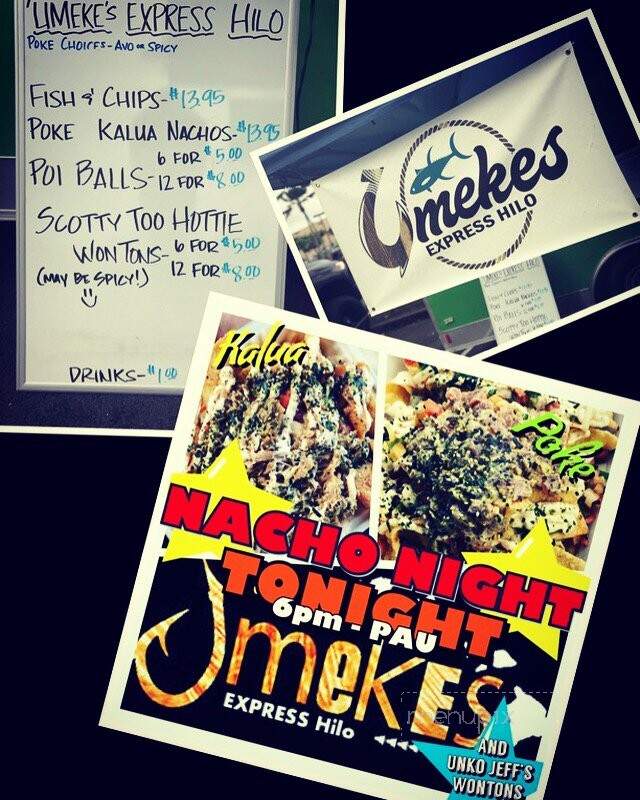 'UMEKE'S EXPRESS HILO
POKE CHOICES - AVO OR SPICY
FISH & CHIPS - $13.95
POKE KALUA NACHOS - $13.95
POI BALLS - 6 FOR $5.00
12 FOR $8.00
SCOTTY TOO HOTTIE
WONTONS - 6 FOR $5.00
(MAY BE SPICY!) 12 FOR $8.00
DRINKS - $1.00
Umekes
EXPRESS HILO
'UMEKE'S EXPRESS HILO
FISH & CHIPS
POKE KALUA NACHOS
POI BALLS
SCOTTY TOO HOTTIE
WONTONS
Kalua
Poke
NACHO NIGHT
TONIGHT
6pm - PAU
UmeKE's
EXPRESS Hilo
AND
UNKO JEFF'S
WONTONS
menupix